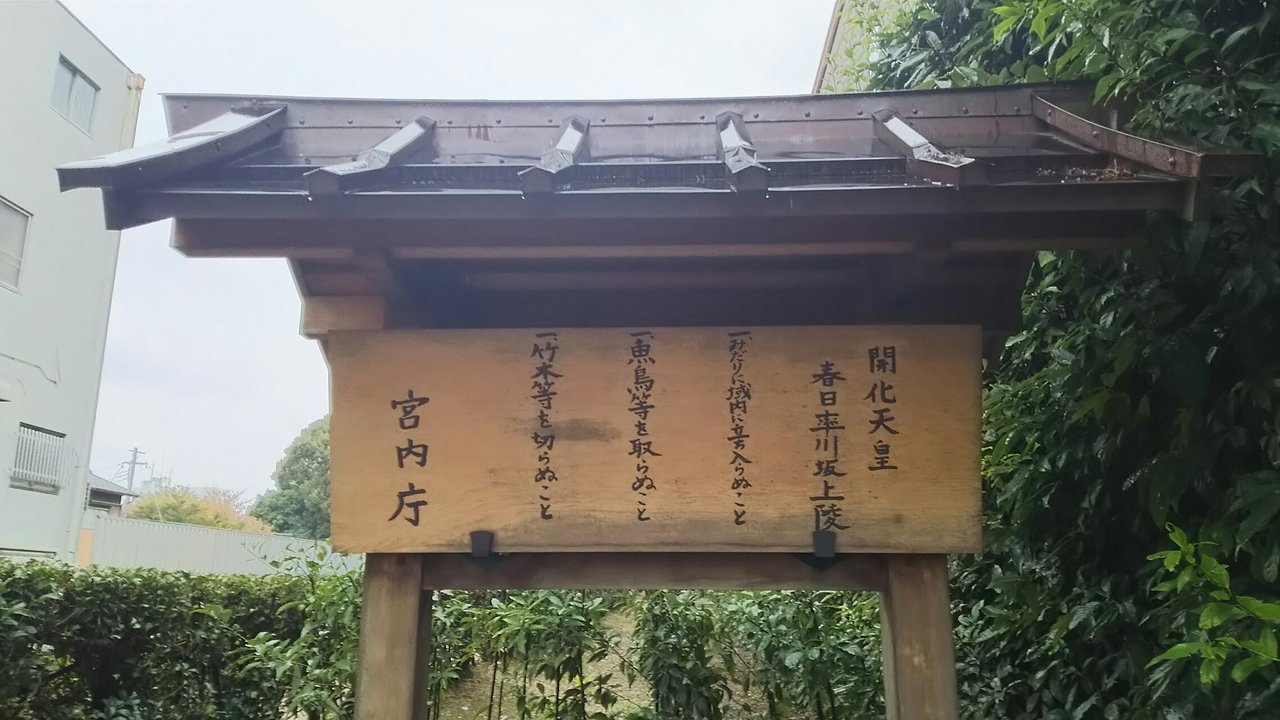 開化天皇
春日率川坂上陵
一、みだりに域内に立入らぬこと
一、魚鳥等を取らぬこと
一、竹木等を切らぬこと
宮内庁